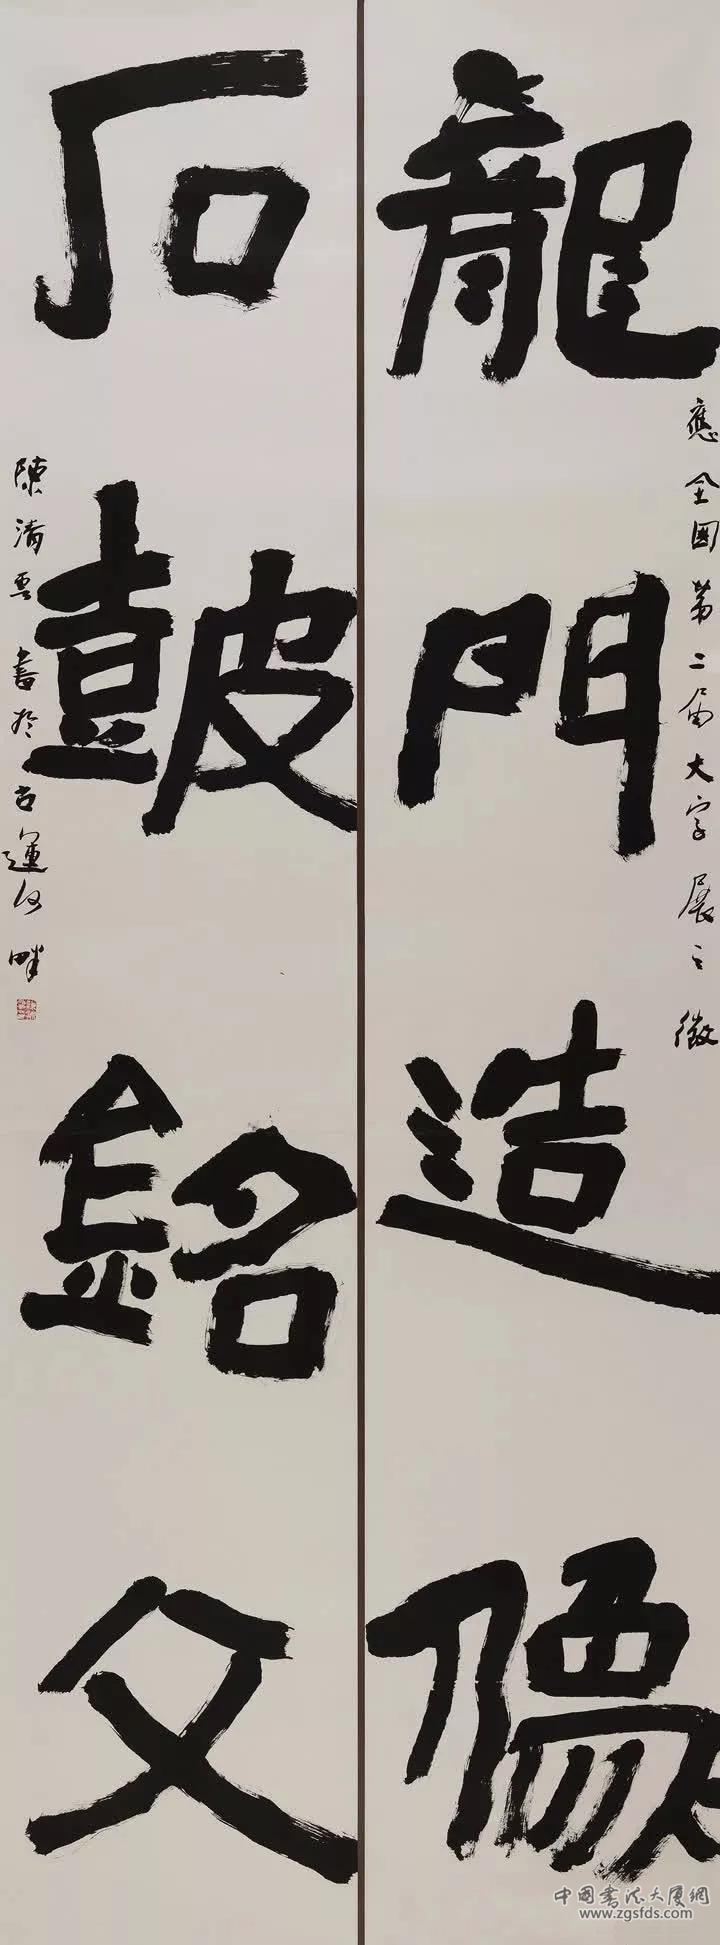 龍門造像
應全國第二届大字展之徵
石皷銘文
陳清雲書於古運河畔
中国书法大厦網
www.zgsfds.com